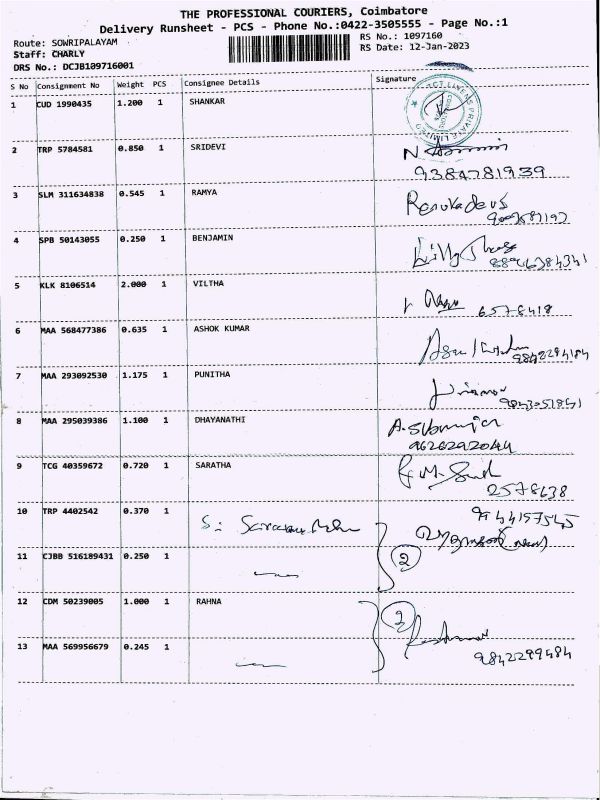 THE PROFESSIONAL COURIERS, Coimbatore
Delivery Runsheet - PCS - Phone No.:0422-3505555 - Page No.:1
Route: SOWRIPALAYAM
RS No.: 1097160
Staff: CHARLY
RS Date: 12-Jan-2023
DRS No.: DCJB109716001
S No Consignment No Weight PCS Consignee Details Signature
1 CUD 1990435 1.200 1 SHANKAR
2 TRP 5784581 0.850 1 SRIDEVI
9384781939
3 SLM 311634838 0.545 1 RAMYA
Renukadevi
4 SPB 50143055 0.250 1 BENJAMIN
5 KLK 8106514 2.000 1 VILTHA
6578418
6 MAA 568477386 0.635 1 ASHOK KUMAR
9842294184
7 MAA 293092530 1.175 1 PUNITHA
9843051841
8 MAA 295039386 1.100 1 DHAYANATHI
9626292044
9 TCG 40359672 0.720 1 SARATHA
2578638
10 TRP 4402542 0.370 1
9744157545
11 CJBB 516189431 0.250 1
2
12 CDM 50239005 1.000 1 RAHNA
2
13 MAA 569956679 0.245 1
9842299484